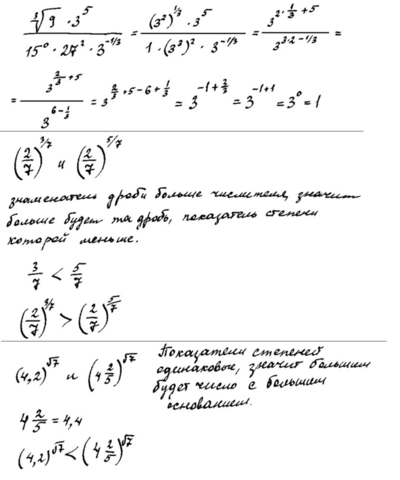 ∛9 · 3^5 / (15^0 · 27^2 · 3^(-1/3)) = (3^2)^(1/3) · 3^5 / (1 · (3^3)^2 · 3^(-1/3)) = 3^(2·1/3+5) / 3^(3·2-1/3) =
= 3^(2/3+5) / 3^(6-1/3) = 3^(2/3+5-6+1/3) = 3^(-1+3/3) = 3^(-1+1) = 3^0 = 1
(2/7)^(3/7) и (2/7)^(5/7)
знаменатель дроби больше числителя, значит
больше будет та дробь, показатель степени
которой меньше.
3/7 < 5/7
(2/7)^(3/7) > (2/7)^(5/7)
(4,2)^√7 и (4 2/5)^√7
4 2/5 = 4,4
(4,2)^√7 < (4 2/5)^√7
Показатели степеней
одинаковые, значит большим
будет число с большим
основанием.